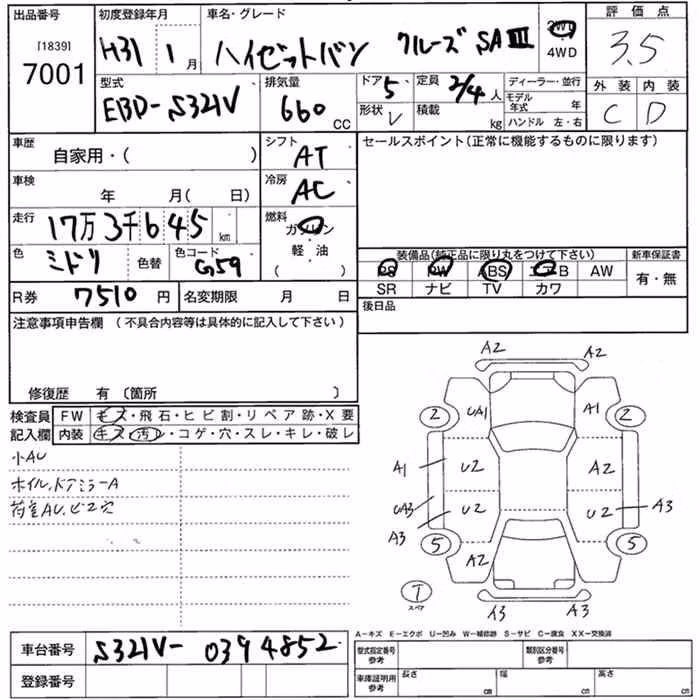 出品番号 初度登録年月 車名・グレード 評価点
[1839]
7001 H31 1月 ハイゼットバン クルーズ SAⅢ 2WD 4WD 3.5
型式 排気量 ドア 定員 ディーラー・並行 外装 内装
EBD-S321V 660 CC 5 2/4人 モデル年式 年 C D
形状 V 積載 kg ハンドル 左・右
車歴 シフト セールスポイント(正常に機能するものに限ります)
自家用・( ) AT
車検 冷房
年 月(日) AC
走行 燃料
17万3千645km ガソリン
色 色コード 軽・油
ミドリ 色替 G59 ( )
装備品(純正品に限り丸をつけて下さい) 新車保証書
PS PW ABS エアB AW 有・無
SR ナビ TV カワ
R券 7510円 名変期限 月 日 後日品
注意事項申告欄 (不具合内容等は具体的に記入して下さい)
修復歴 有 〔箇所 〕
検査員 FW キズ・飛石・ヒビ割・リペア跡・X要
記入欄 内装 キズ・汚レ・コゲ・穴・スレ・キレ・破レ
小AU
ホイル,ドアミラーA
荷室AU,ビス穴
A2 A2
2 UA1 A1 2
A1 U2 A2
UA3 U2 U2 A3
A3
5 A2 5
T
スペア
A3 A3
A-キズ E-エクボ U-凹み W-補修跡 S-サビ C-腐食 XX-交換済
車台番号 S321V-0394852
型式指定番号 参考 類別区分番号 参考
登録番号
車庫証明用 参考 長さ cm 幅 cm 高さ cm